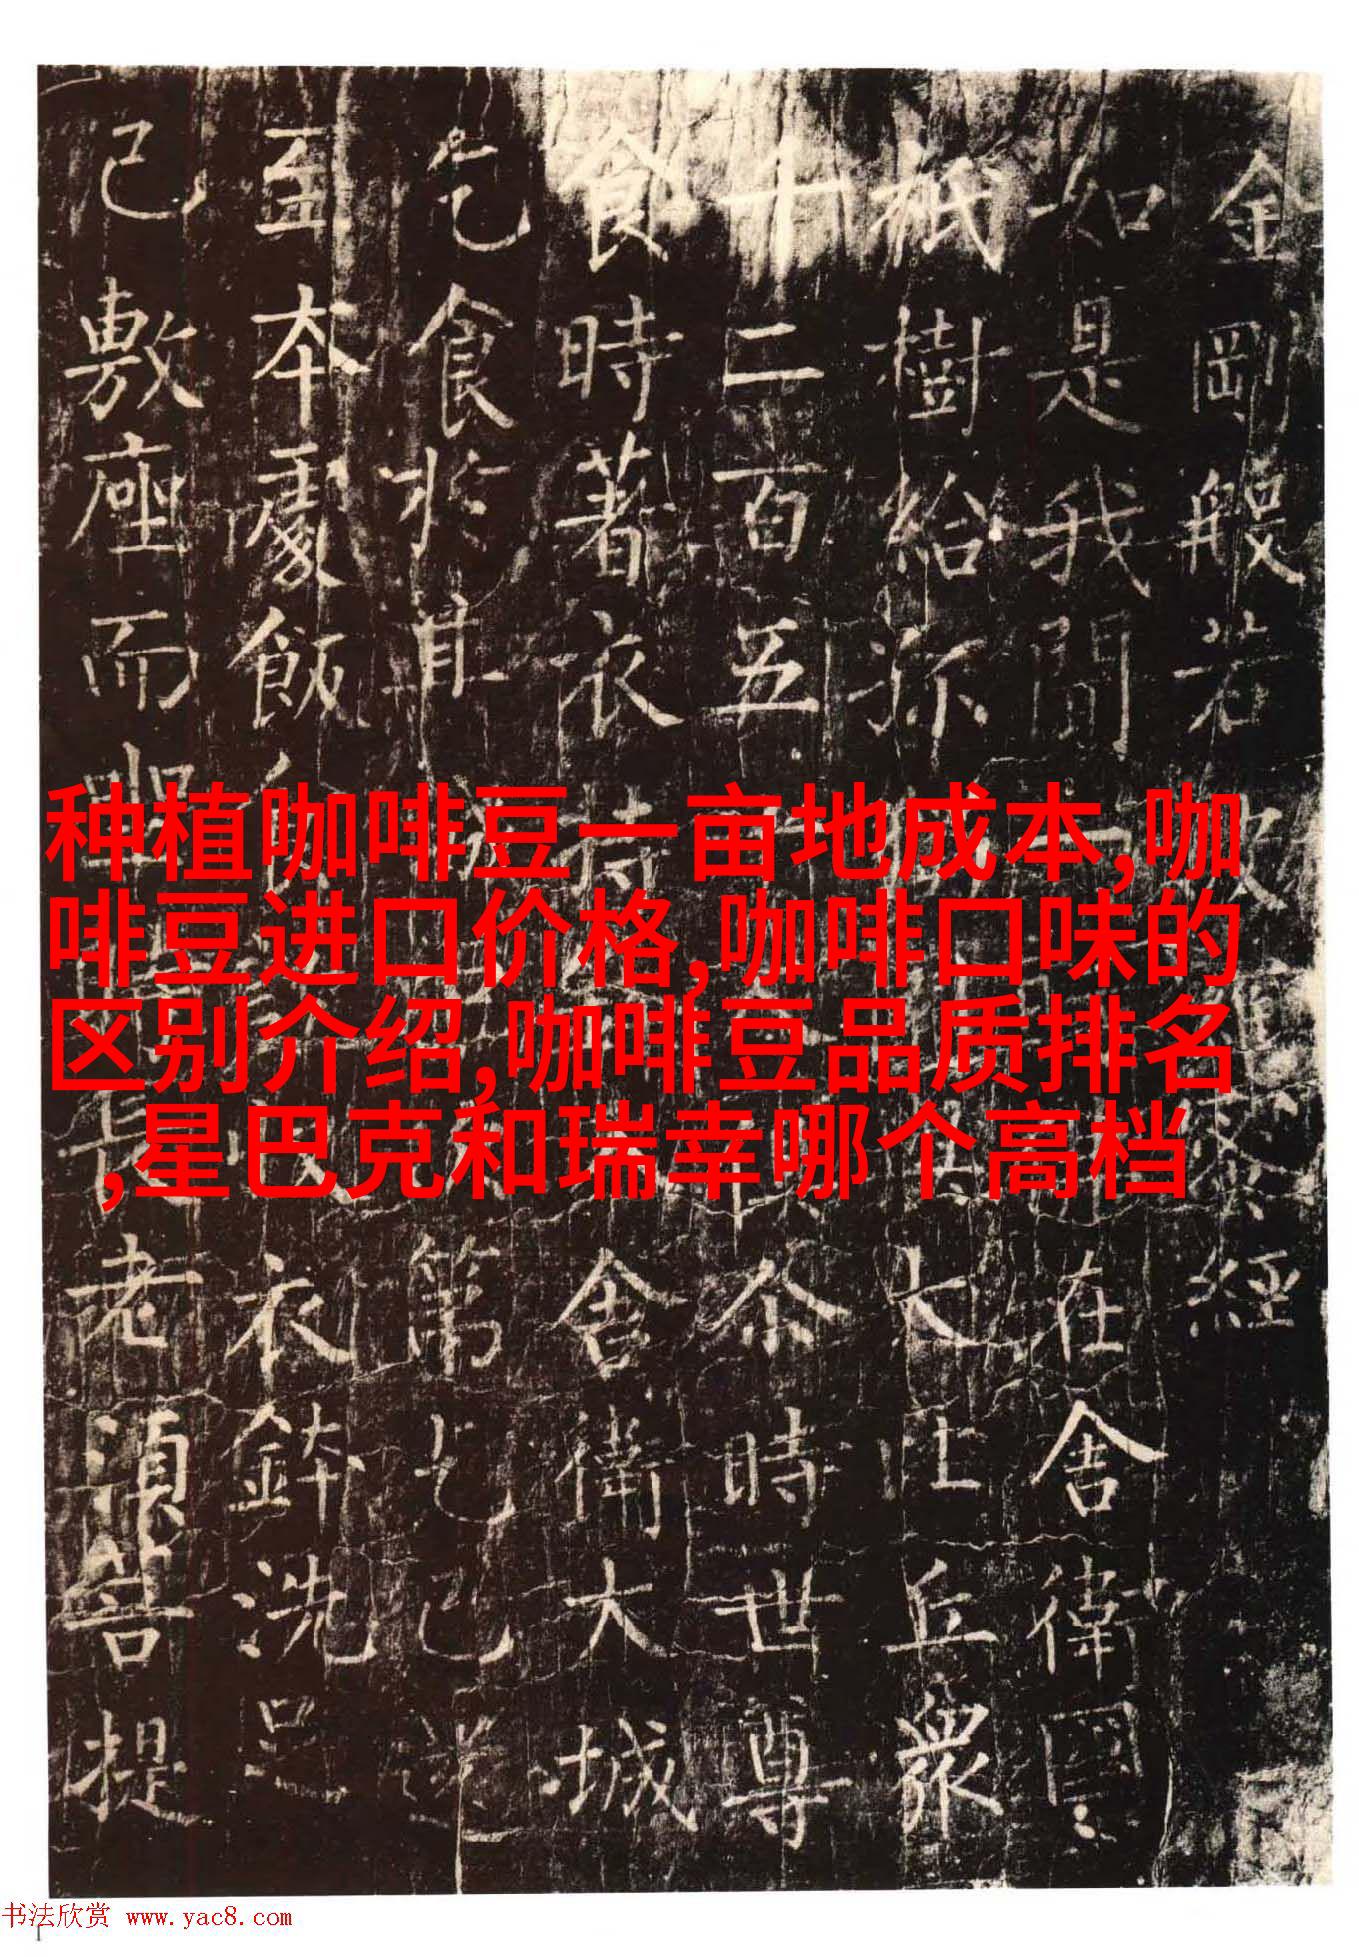 金剛般若波羅蜜經
如是我聞一在舍衛國
祇樹給孤大比丘衆
十二百五人俱尒時世尊
食時著衣持舍衛大城
乞食於其第乞已還
至本處飯衣鉢洗足
已敷座而坐時長老須菩提
种植咖啡豆一亩地成本,咖
啡豆进口价格,咖啡口味的
区别介绍,咖啡豆品质排名
,星巴克和瑞幸哪个高档
书法欣赏 www.yac8.com